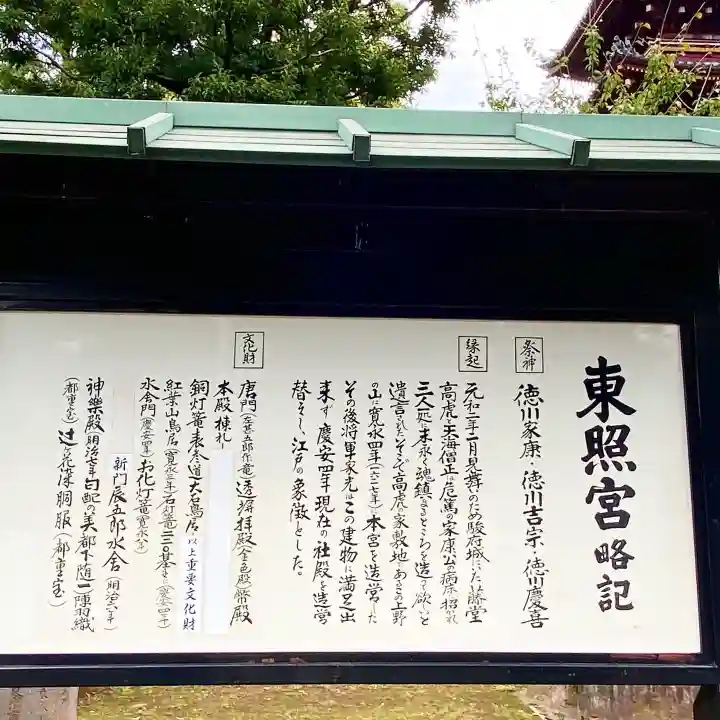 東照宮略記
祭神
徳川家康・徳川吉宗・徳川慶喜
縁起
元和二年二月見舞いのため駿府城にいた藤堂
高虎と天海僧正は危篤の家康公の病床に招かれ
三人一処に末永く魂鎮まるところを造って欲しいと
遺言された。そこで高虎の家敷地であるこの上野
の山に寛永四年(一六二七年)に本宮を造営した
その後将軍家光はこの建物に満足出
来ず慶安四年現在の社殿を造営
替えし、江戸の象徴とした。
文化財
唐門(左甚五郎作竜)透塀拝殿(金色殿)幣殿
本殿棟札
銅灯篭表参道大石鳥居以上重要文化財
石灯篭二三〇基(慶安四年)
水舎門(慶安四年)お化灯篭(寛永八年)
新門辰五郎水舎(明治六年)
神樂殿(明治七年)勾配の美都下随一)陣羽織
(都重宝)辻ヶ花染胴服(都重宝)